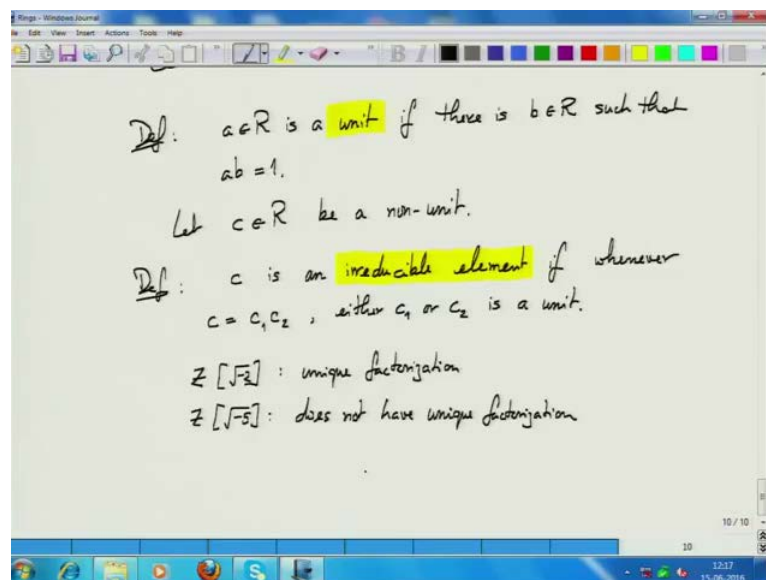 Rings - Windows Journal
File Edit View Insert Actions Tools Help
Def: a ∈ R is a unit if there is b ∈ R such that
ab = 1.
Let c ∈ R be a non-unit.
Def: c is an irreducible element if whenever
c = c₁c₂, either c₁ or c₂ is a unit.
Z[√-2] : unique factorization
Z[√-5] : does not have unique factorization
10 / 10
10
12:17
15-06-2016